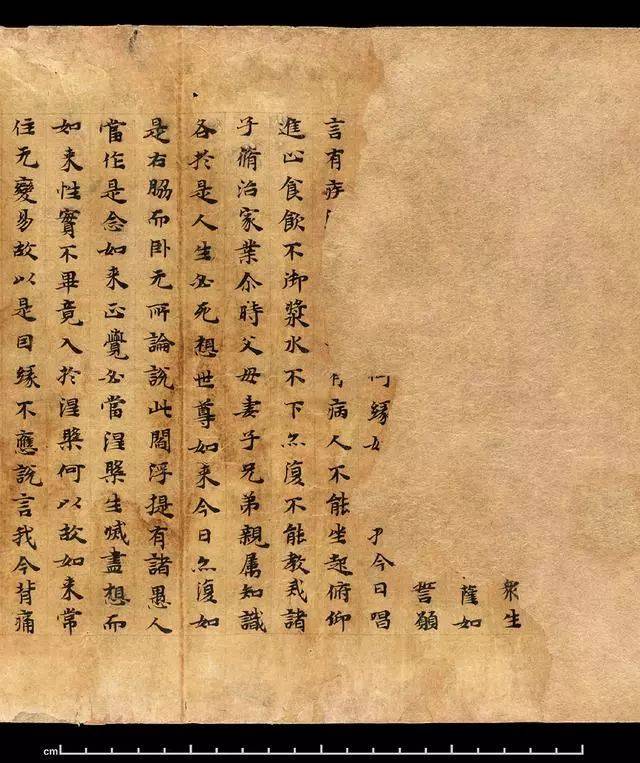 衆生
薩如
誓願
何緣 今日唱
言有疾 有病人不能坐起俯仰
進止食飲不御漿水不下亦復不能教戒諸
子脩治家業尒時父母妻子兄弟親属知識
各於是人生必死想世尊如来今日亦復如
是右脇而卧无所論説此閻浮提有諸愚人
當作是念如来正覺必當涅槃生滅盡想而
如来性實不畢竟入於涅槃何以故如来常
住无變易故以是因緣不應説言我今背痛
cm